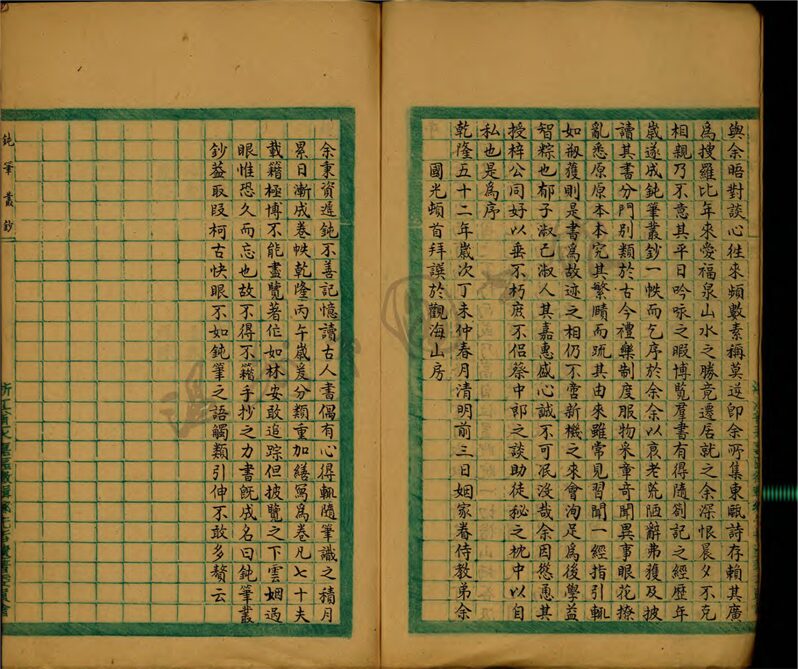 與余晤對談心往來頻數素稱莫逆卽余所集東甌詩存賴其廣
為搜羅比年來愛福泉山水之勝竟遷居就之余深恨晨夕不克
相親乃不意其平日吟咏之暇博覽羣書有得隨劄記之經歷年
歲遂成鈍筆叢鈔一帙而乞序於余余以衰老荒陋辭弗獲及披
讀其書分門別類於古今禮樂制度服物采章奇聞異事眼花撩
亂悉原原本本究其繁賾而疏其由來雖常見習聞一經指引輒
如初獲則是書為故迹之相仍不啻新機之來會洵足為後學益
智粽也郁子淑己淑人其嘉惠感心誠不可泯沒哉余因慫恿其
授梓公同好以垂不朽庶不侶蔡中郎之談助徒秘之枕中以自
私也是為序
乾隆五十二年歲次丁未仲春月清明前三日姻家眷侍教弟余
國光頓首拜譔於觀海山房
余秉資遲鈍不善記憶讀古人書偶有心得輒隨筆識之積月
累日漸成卷帙乾隆丙午歲爰分類重加繕寫為卷凡七十夫
載籍極博不能盡覽著位如林安敢追踪但披覽之下雲烟過
眼惟恐久而忘也故不得不籍手抄之力書旣成名曰鈍筆叢
鈔葢取叚柯古快眼不如鈍筆之語觸類引伸不敢多贅云
鈍筆叢鈔